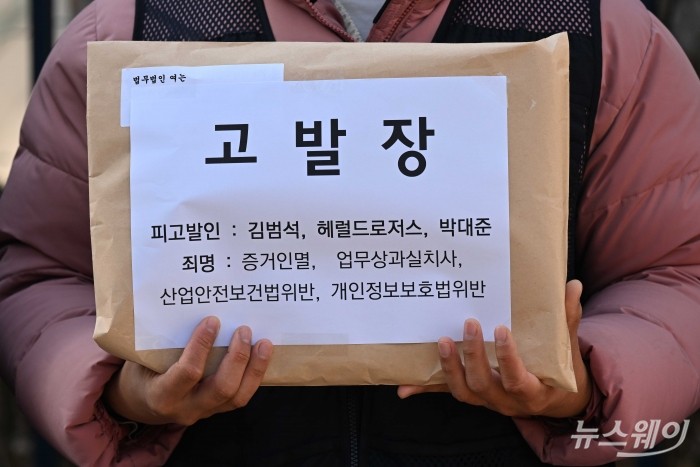 법무법인 여는
고 발 장
피고발인 : 김범석, 헤럴드로저스, 박대준
죄명 : 증거인멸, 업무상과실치사,
산업안전보건법위반, 개인정보보호법위반
뉴스웨이